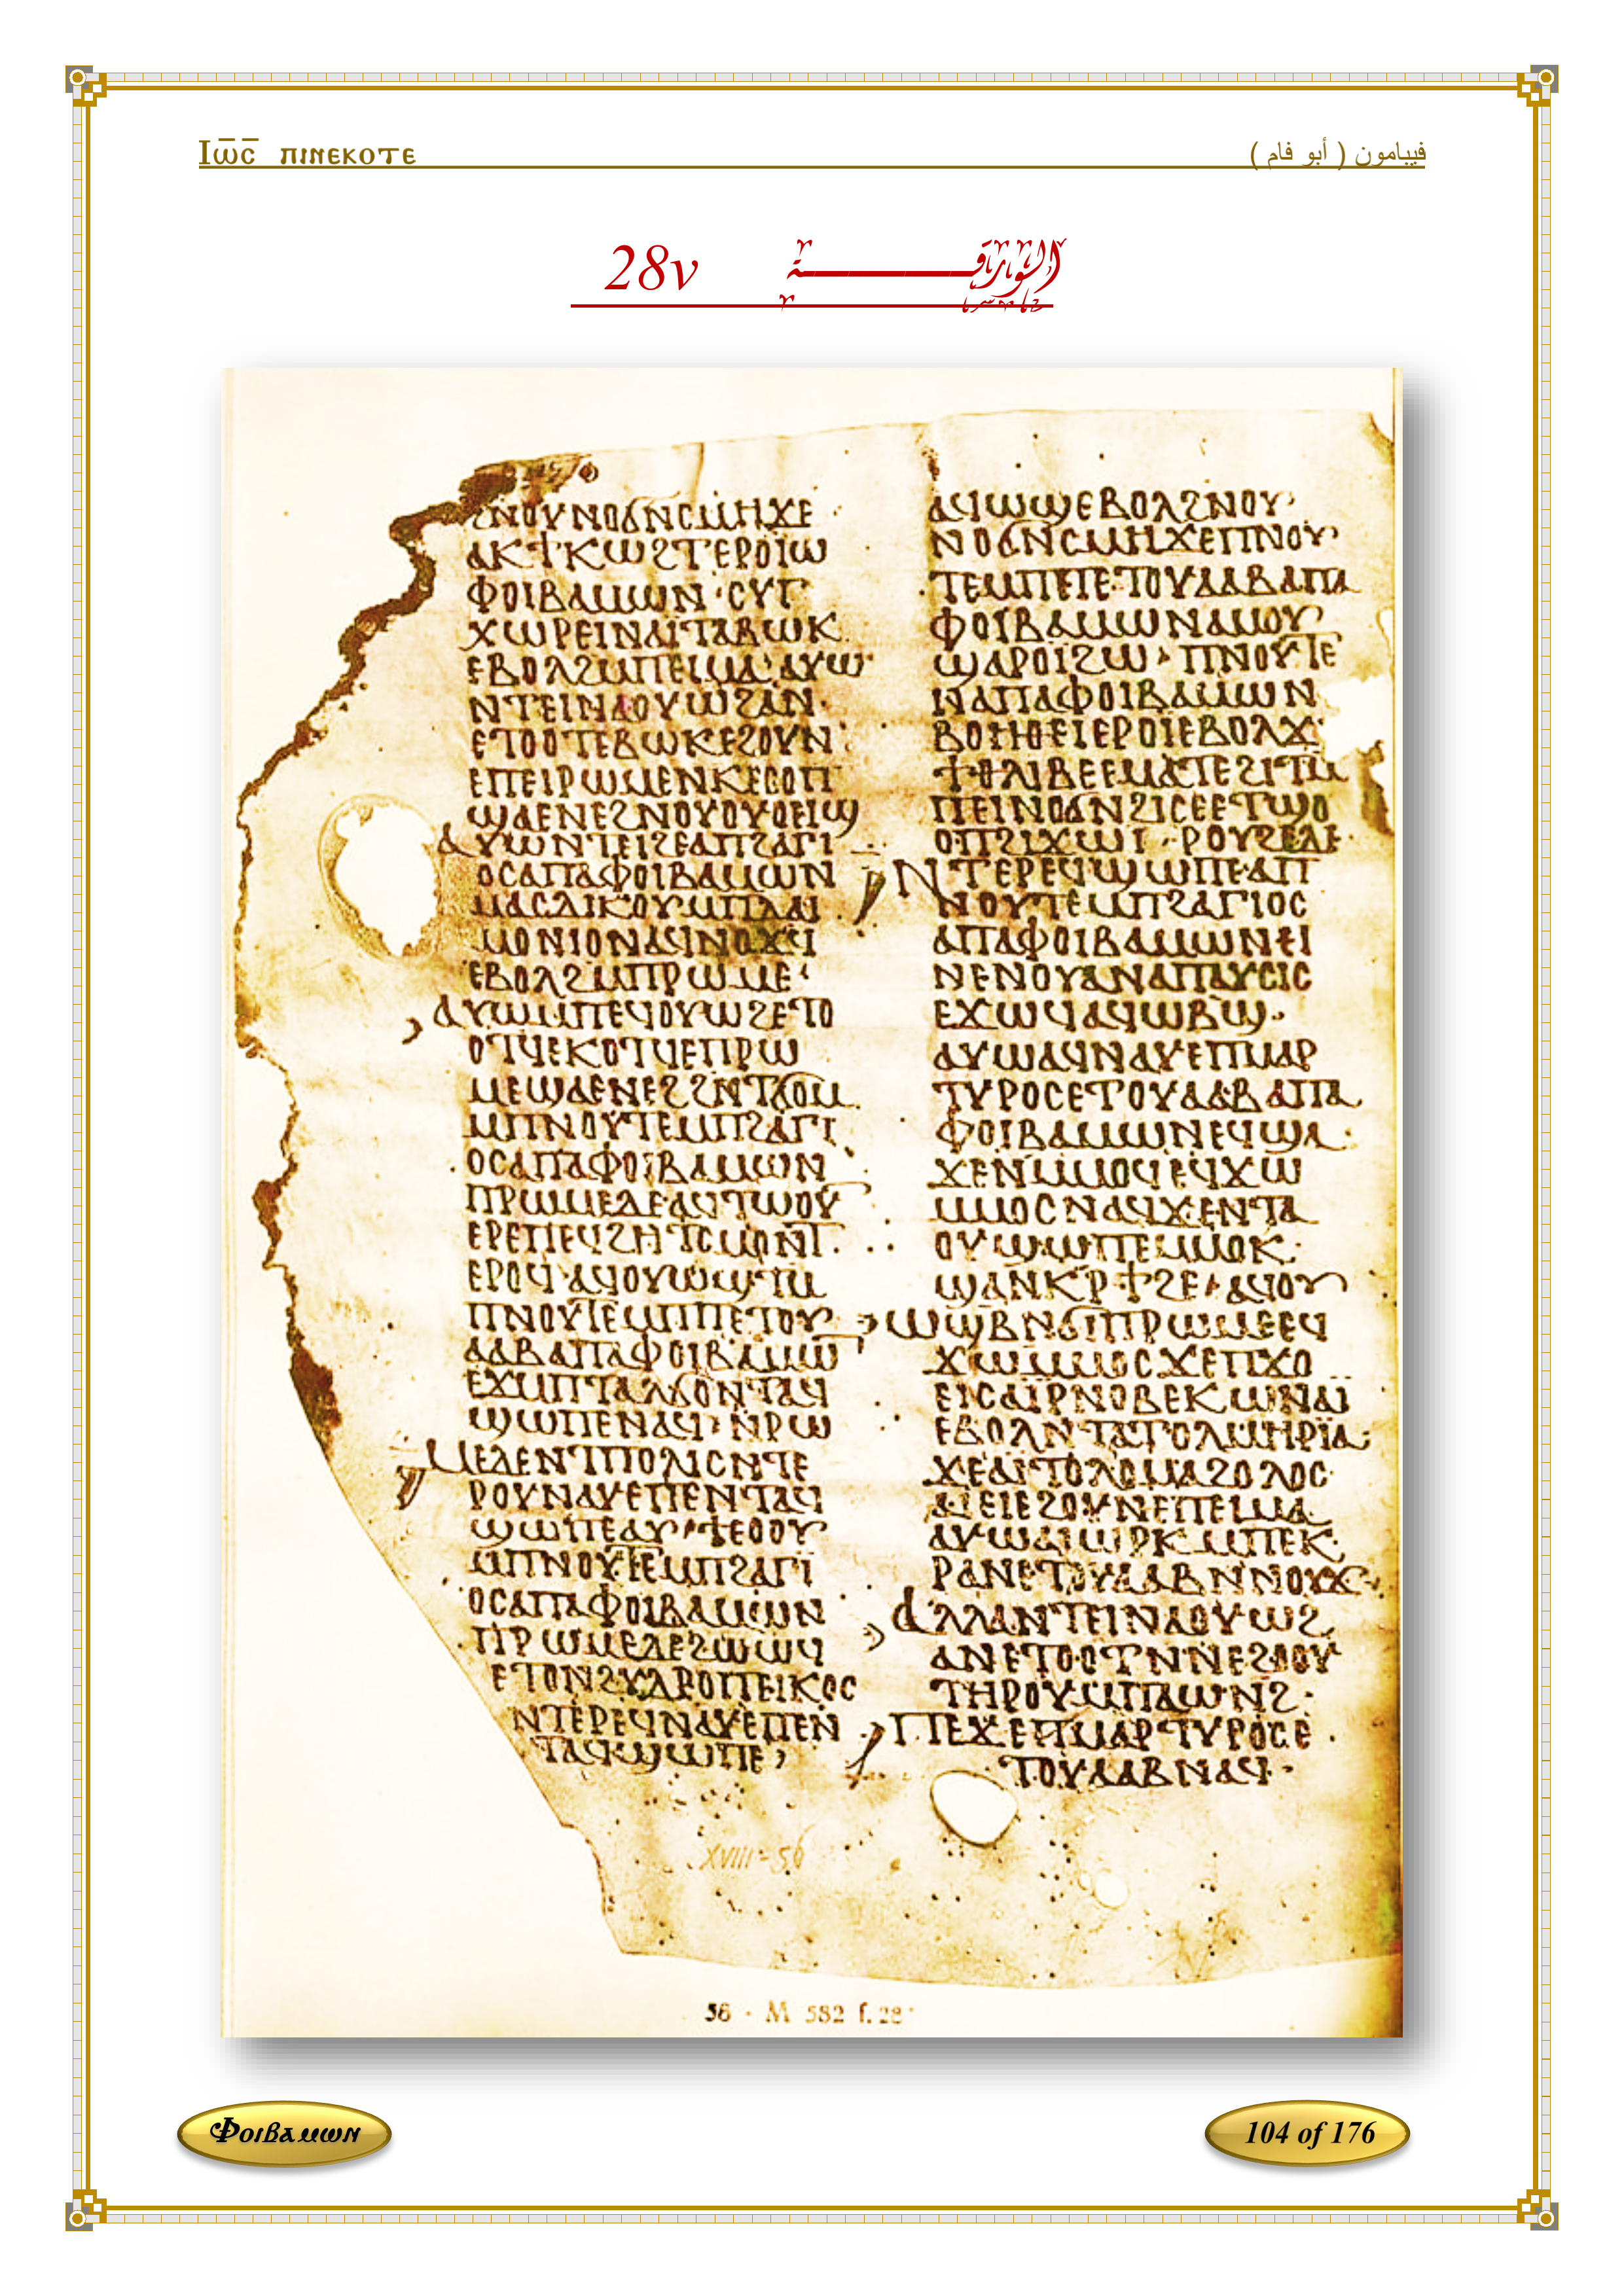 Ⲓⲱ̅ⲥ̅ ⲡⲓⲛⲉⲕⲟⲧⲉ
فيبامون ( أبو فام )
الورقة 28v
ϩⲛⲟⲩⲛⲟϭⲛⲥⲙⲏϫⲉ
ⲁⲕϯⲕⲱϩⲧⲉⲣⲟⲓⲱ
ⲫⲟⲓⲃⲁⲙⲱⲛ·ⲥⲩⲅ
ⲭⲱⲣⲉⲓⲛⲁⲓⲧⲁⲃⲱⲕ
ⲉⲃⲟⲗϩⲙⲡⲉⲓⲙⲁ·ⲁⲩⲱ
ⲛⲧⲉⲓⲛⲁⲟⲩⲱϩⲁⲛ·
ⲉⲧⲟⲟⲧⲉⲃⲱⲕⲉϩⲟⲩⲛ
ⲉⲡⲉⲓⲣⲱⲙⲉⲛⲕⲉⲥⲟⲡ
ϣⲁⲉⲛⲉϩⲛⲟⲩⲟⲩⲟⲉⲓϣ
ⲁⲩⲱⲛⲧⲉⲓϩⲉⲁⲡϩⲁⲅⲓ
ⲟⲥⲁⲡⲁⲫⲟⲓⲃⲁⲙⲱⲛ
ⲙⲁⲥⲧⲓⲕⲟⲩⲙⲡⲇⲁⲓ
ⲙⲟⲛⲓⲟⲛⲁϥⲛⲟϫϥ
ⲉⲃⲟⲗϩⲙⲡⲣⲱⲙⲉ·
ⲁⲩⲱⲙⲡⲉϥⲟⲩⲱϩⲉⲧⲟ
ⲟⲧϥⲉⲕⲟⲧϥⲉⲡⲣⲱ
ⲙⲉϣⲁⲉⲛⲉϩϩⲛⲧϭⲟⲙ
ⲙⲡⲛⲟⲩⲧⲉⲙⲡϩⲁⲅⲓ
ⲟⲥⲁⲡⲁⲫⲟⲓⲃⲁⲙⲱⲛ
ⲡⲣⲱⲙⲉⲇⲉⲁϥⲧⲱⲟⲩ
ⲉⲣⲉⲡⲉϥϩⲏⲧⲥⲙⲟⲛⲧ·
ⲉⲣⲟϥ·ⲁϥⲟⲩⲱϣⲧⲙ
ⲡⲛⲟⲩⲧⲉⲙⲡⲡⲉⲧⲟⲩ
ⲁⲁⲃⲁⲡⲁⲫⲟⲓⲃⲁⲙⲱ̅
ⲉϫⲙⲡⲧⲁⲗϭⲟⲛⲧⲁϥ
ϣⲱⲡⲉⲛⲁϥ·ⲛⲣⲱ
ⲙⲉⲇⲉⲛⲧⲡⲟⲗⲓⲥⲛⲧⲉ
ⲣⲟⲩⲛⲁⲩⲉⲡⲉⲛⲧⲁϥ
ϣⲱⲡⲉⲁⲩϯⲉⲟⲟⲩ
ⲙⲡⲛⲟⲩⲧⲉⲙⲡϩⲁⲅⲓ
ⲟⲥⲁⲡⲁⲫⲟⲓⲃⲁⲙⲱⲛ
ⲡⲣⲱⲙⲉⲇⲉϩⲱⲱϥ
ⲉⲧⲟⲛϩⲩⲇⲣⲟⲡⲉⲓⲕⲟⲥ
ⲛⲧⲉⲣⲉϥⲛⲁⲩⲉⲡⲉⲛ
ⲧⲁϥϣⲱⲡⲉ
ⲁϥⲱϣⲉⲃⲟⲗϩⲛⲟⲩ
ⲛⲟϭⲛⲥⲙⲏϫⲉⲡⲛⲟⲩ
ⲧⲉⲙⲡⲉⲧⲟⲩⲁⲁⲃⲁⲡⲁ
ⲫⲟⲓⲃⲁⲙⲱⲛⲁⲙⲟⲩ
ϣⲁⲣⲟⲓϩⲱ·ⲡⲛⲟⲩⲧⲉ
ⲛⲁⲡⲁⲫⲟⲓⲃⲁⲙⲱⲛ
ⲃⲟⲏⲑⲉⲓⲉⲣⲟⲓⲉⲃⲟⲗϫ
ϯⲑⲗⲓⲃⲉⲉⲙⲁⲧⲉϩⲓⲧⲙ
ⲡⲉⲓⲛⲟϭⲛϩⲓⲥⲉⲉⲧϣⲟ
ⲟⲡϩⲓϫⲱⲓ·ⲣⲟⲩϩⲉⲇⲉ
ⲛⲧⲉⲣⲉϥϣⲱⲡⲉⲁⲡ
ⲛⲟⲩⲧⲉⲙⲡϩⲁⲅⲓⲟⲥ
ⲁⲡⲁⲫⲟⲓⲃⲁⲙⲱⲛⲉⲓ
ⲛⲉⲛⲟⲩⲁⲛⲁⲡⲁⲩⲥⲓⲥ
ⲉϫⲱϥⲁϥⲱⲃϣ·
ⲁⲩⲱⲁϥⲛⲁⲩⲉⲡⲙⲁⲣ
ⲧⲩⲣⲟⲥⲉⲧⲟⲩⲁⲁⲃⲁⲡⲁ
ⲫⲟⲓⲃⲁⲙⲱⲛⲉϥϣⲁ
ϫⲉⲛⲙⲙⲟϥⲉϥϫⲱ
ⲙⲙⲟⲥⲛⲁϥϫⲉⲛⲧⲁ
ⲟⲩϣⲱⲡⲉⲙⲙⲟⲕ
ϣⲁⲛⲕⲣϯϩⲉ·ⲁϥⲟⲩ
ⲱϣⲃⲛϭⲓⲡⲣⲱⲙⲉⲉϥ
ϫⲱⲙⲙⲟⲥϫⲉⲡϫⲟ
ⲉⲓⲥⲁⲓⲣⲛⲟⲃⲉⲕⲱⲛⲁⲓ
ⲉⲃⲟⲗⲛⲧⲁⲧⲟⲗⲙⲏⲣⲓⲁ
ϫⲉⲁⲓⲧⲟⲗⲟⲙⲁϩⲟⲗⲟⲥ
ⲁⲓⲉⲓⲉϩⲟⲩⲛⲉⲡⲉⲓⲙⲁ
ⲁⲩⲱⲁⲓⲱⲣⲕⲙⲡⲉⲕ
ⲣⲁⲛⲉⲧⲟⲩⲁⲁⲃⲛⲛⲟⲩϫ
ⲁⲗⲗⲁⲛⲧⲉⲓⲛⲁⲟⲩⲱϩ
ⲁⲛⲉⲧⲟⲟⲧⲛⲛⲉϩⲟⲟⲩ
ⲧⲏⲣⲟⲩⲙⲡⲁⲱⲛϩ·
ⲡⲉϫⲉⲡⲙⲁⲣⲧⲩⲣⲟⲥⲉ
ⲧⲟⲩⲁⲁⲃⲛⲁϥ·
XVIII-56
56 · M 582 f. 28ᵛ
Ⲫⲟⲓⲃⲁⲙⲱⲛ
104 of 176